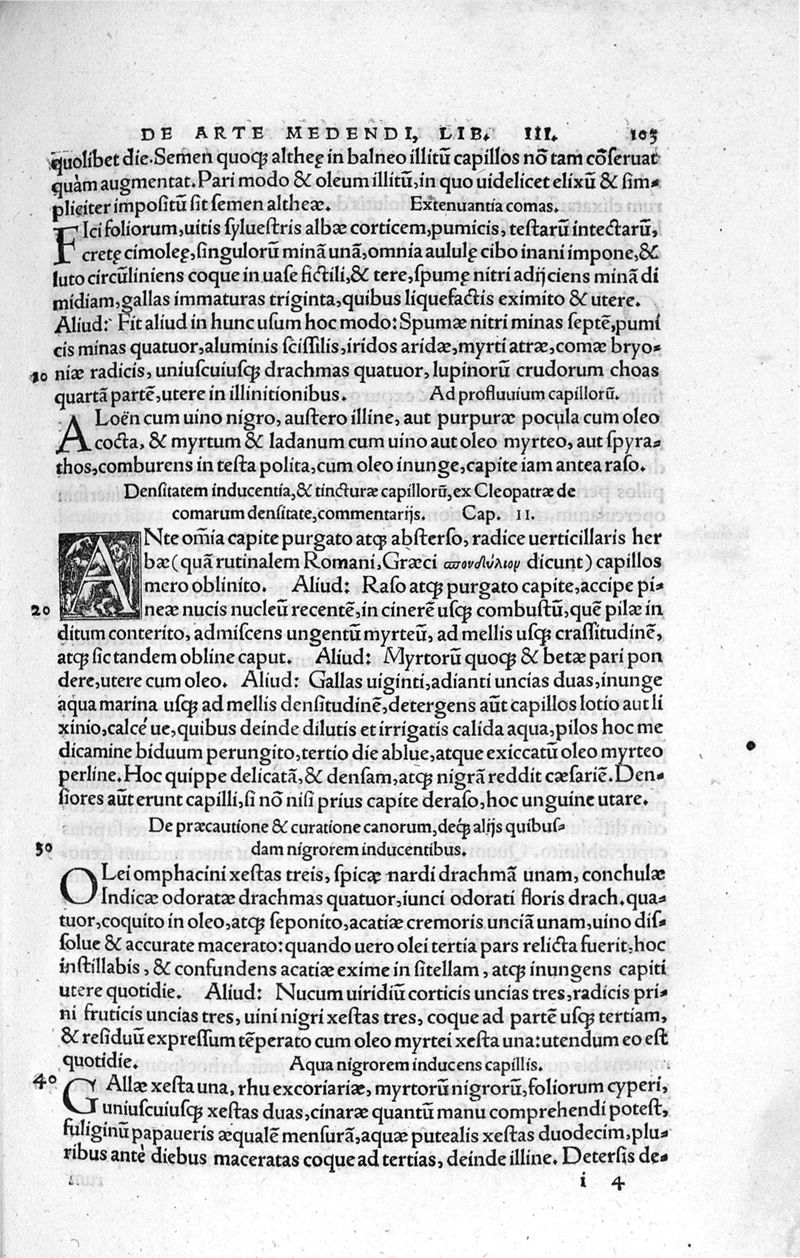 DE ARTE MEDENDI, LIB. III. 103
quolibet die. Semen quoq; altheę in balneo illitũ capillos nõ tam cõſeruat
quàm augmentat. Pari modo & oleum illitũ, in quo uidelicet elixũ & ſim-
pliciter impoſitũ ſit ſemen altheæ. Extenuantia comas.
FIci foliorum, uitis ſylueſtris albæ corticem, pumicis, teſtarũ intectarũ,
cretę cimoleę, ſingulorũ minã unã, omnia aululę cibo inani impone, &
luto circũliniens coque in uaſe fictili, & tere, ſpumę nitri adijciens minã di
midiam, gallas immaturas triginta, quibus liquefactis eximito & utere.
Aliud: Fit aliud in hunc uſum hoc modo: Spumæ nitri minas ſeptẽ, pumi
cis minas quatuor, aluminis ſciſſilis, iridos aridæ, myrti atræ, comæ bryo-
30 niæ radicis, uniuſcuiuſq; drachmas quatuor, lupinorũ crudorum choas
quartã partẽ, utere in illinitionibus. Ad profluuium capillorũ.
ALoën cum uino nigro, auſtero illine, aut purpuræ pocula cum oleo
cocta, & myrtum & ladanum cum uino aut oleo myrteo, aut ſpyra-
thos, comburens in teſta polita, cum oleo inunge, capite iam antea raſo.
Denſitatem inducentia, & tincturæ capillorũ, ex Cleopatræ de
comarum denſitate, commentarijs. Cap. II.
ANte om̃ia capite purgato atq; abſterſo, radice uerticillaris her
bæ (quã rutinalem Romani, Græci σπονδύλιον dicunt) capillos
mero oblinito. Aliud: Raſo atq; purgato capite, accipe pi-
20 neæ nucis nucleũ recentẽ, in cinerẽ uſq; combuſtũ, quẽ pilæ in
ditum conterito, admiſcens ungentũ myrteũ, ad mellis uſq; craſſitudinẽ,
atq; ſic tandem obline caput. Aliud: Myrtorũ quoq; & betæ pari pon
dere, utere cum oleo. Aliud: Gallas uiginti, adianti uncias duas, inunge
aqua marina uſq; ad mellis denſitudinẽ, detergens aũt capillos lotio aut li
xinio, calcé ue, quibus deinde dilutis et irrigatis calida aqua, pilos hoc me
dicamine biduum perungito, tertio die ablue, atque exiccatũ oleo myrteo
perline. Hoc quippe delicatã, & denſam, atq; nigrã reddit cæſariẽ. Den-
ſiores aũt erunt capilli, ſi nõ niſi prius capite deraſo, hoc unguine utare.
De præcautione & curatione canorum, deq; alijs quibuſ-
30 dam nigrorem inducentibus.
OLei omphacini xeſtas treis, ſpicæ nardi drachmã unam, conchulæ
Indicæ odoratæ drachmas quatuor, iunci odorati floris drach. qua-
tuor, coquito in oleo, atq; ſeponito, acatiæ cremoris unciã unam, uino diſ-
ſolue & accurate macerato: quando uero olei tertia pars relicta fuerit, hoc
inſtillabis, & confundens acatiæ exime in ſitellam, atq; inungens capiti
utere quotidie. Aliud: Nucum uiridiũ corticis uncias tres, radicis pri-
ni fruticis uncias tres, uini nigri xeſtas tres, coque ad partẽ uſq; tertiam,
& reſiduũ expreſſum tẽperato cum oleo myrtei xeſta una: utendum eo eſt
quotidie. Aqua nigrorem inducens capillis.
40 GAllæ xeſta una, rhu excoriariæ, myrtorũ nigrorũ, foliorum cyperi,
uniuſcuiuſq; xeſtas duas, cinaræ quantũ manu comprehendi poteſt,
fuliginũ papaueris æqualẽ menſurã, aquæ putealis xeſtas duodecim, plu-
ribus antè diebus maceratas coque ad tertias, deinde illine. Deterſis de-
i 4